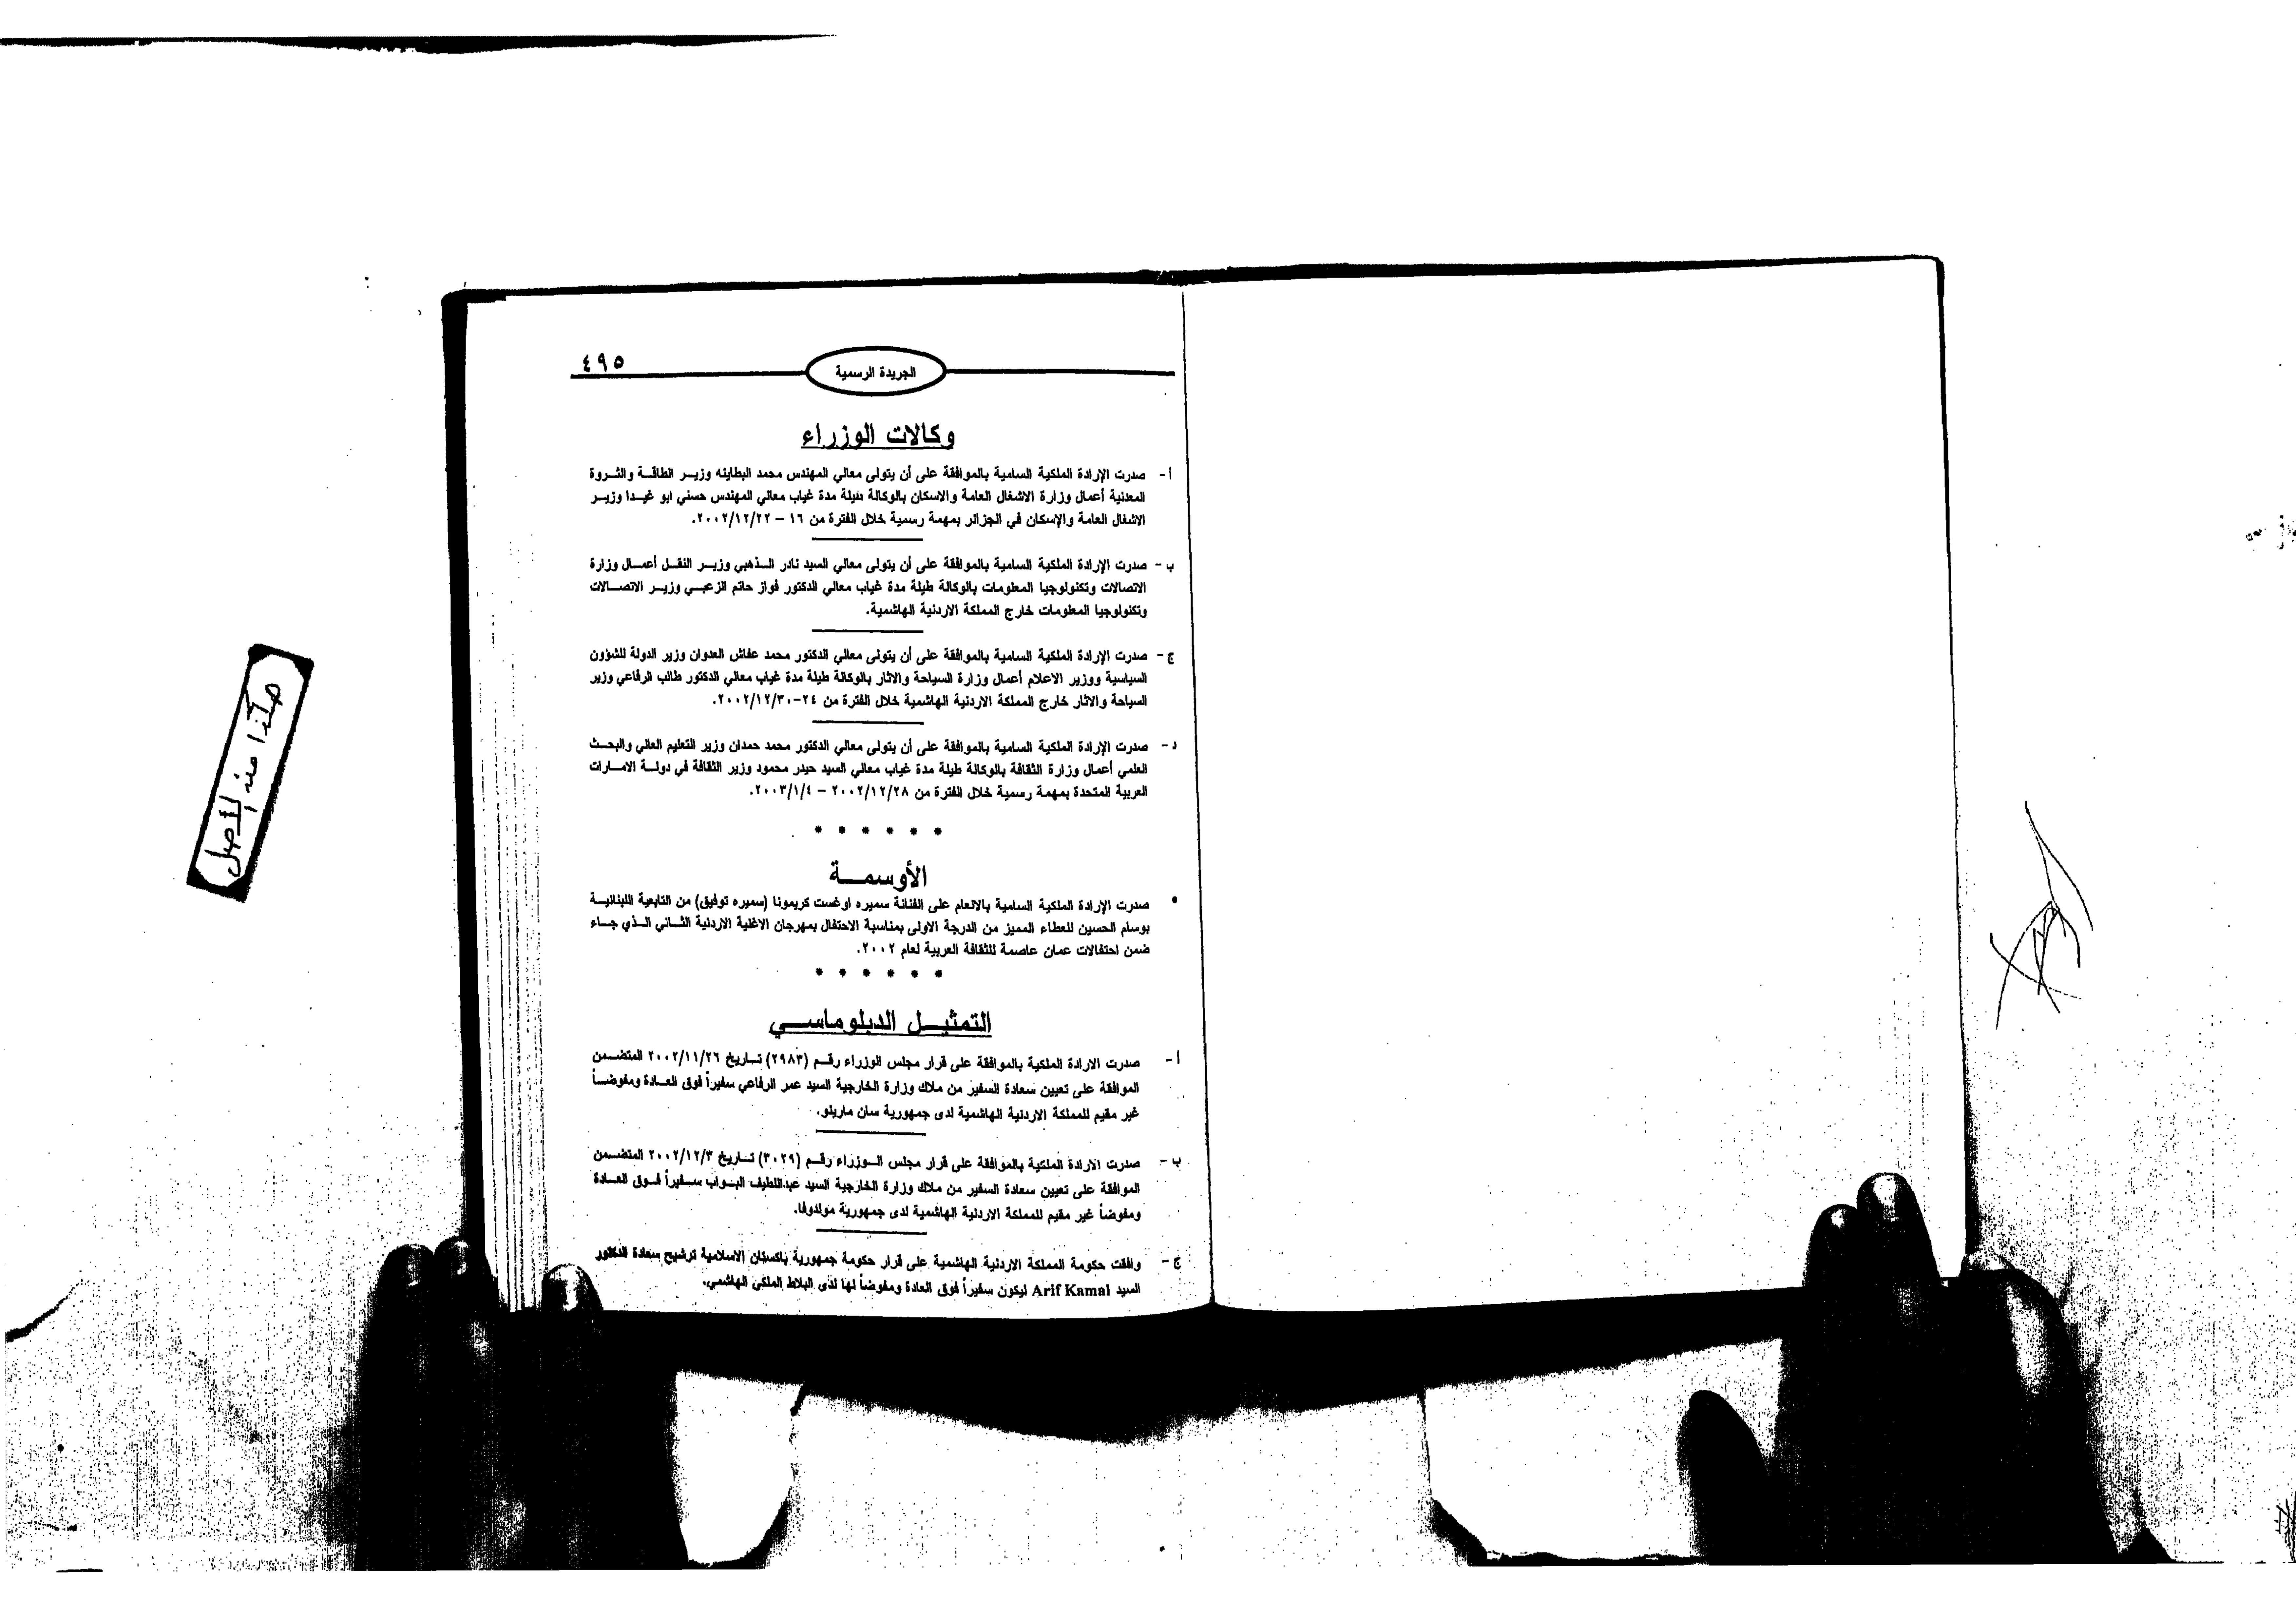 ٤٩٥
الجريدة الرسمية
وكالات الوزراء
أ - صدرت الإرادة الملكية السامية بالموافقة على أن يتولى معالي المهندس محمد البطاينه وزيـر الطاقـة والثـروة
المعدنية أعمال وزارة الاشغال العامة والاسكان بالوكالة طيلة مدة غياب معالي المهندس حسني ابو غيـدا وزيـر
الاشغال العامة والإسكان في الجزائر بمهمة رسمية خلال الفترة من ١٦ – ٢٠٠٢/١٢/٢٢.
ب - صدرت الإرادة الملكية السامية بالموافقة على أن يتولى معالي السيد نادر الـذهبي وزيـر النقـل أعمـال وزارة
الاتصالات وتكنولوجيا المعلومات بالوكالة طيلة مدة غياب معالي الدكتور فواز حاتم الزعبـي وزيـر الاتصـالات
وتكنولوجيا المعلومات خارج المملكة الاردنية الهاشمية.
ج - صدرت الإرادة الملكية السامية بالموافقة على أن يتولى معالي الدكتور محمد عفاش العدوان وزير الدولة للشؤون
السياسية ووزير الاعلام أعمال وزارة السياحة والاثار بالوكالة طيلة مدة غياب معالي الدكتور طالب الرفاعي وزير
السياحة والاثار خارج المملكة الاردنية الهاشمية خلال الفترة من ٢٤-٢٠٠٢/١٢/٣٠.
د - صدرت الإرادة الملكية السامية بالموافقة على أن يتولى معالي الدكتور محمد حمدان وزير التعليم العالي والبحـث
العلمي أعمال وزارة الثقافة بالوكالة طيلة مدة غياب معالي السيد حيدر محمود وزير الثقافة في دولـة الامـارات
العربية المتحدة بمهمة رسمية خلال الفترة من ٢٠٠٢/١٢/٢٨ – ٢٠٠٣/١/٤.
* * * * * *
الأوسمـــة
• صدرت الإرادة الملكية السامية بالانعام على الفنانة سميره اوغست كريمونا (سميره توفيق) من التابعية اللبنانيـة
بوسام الحسين للعطاء المميز من الدرجة الاولى بمناسبة الاحتفال بمهرجان الاغنية الاردنية الثـاني الـذي جـاء
ضمن احتفالات عمان عاصمة للثقافة العربية لعام ٢٠٠٢.
* * * * * *
التمثيـــل الدبلوماســـي
أ - صدرت الارادة الملكية بالموافقة على قرار مجلس الوزراء رقـم (٢٩٨٣) تـاريخ ٢٠٠٢/١١/٢٦ المتضـمن
الموافقة على تعيين سعادة السفير من ملاك وزارة الخارجية السيد عمر الرفاعي سفيراً فوق العـادة ومفوضـاً
غير مقيم للمملكة الاردنية الهاشمية لدى جمهورية سان مارينو.
ب - صدرت الارادة الملكية بالموافقة على قرار مجلس الـوزراء رقـم (٣٠٢٩) تـاريخ ٢٠٠٢/١٢/٣ المتضـمن
الموافقة على تعيين سعادة السفير من ملاك وزارة الخارجية السيد عبداللطيف البـواب سـفيراً فـوق العـادة
ومفوضاً غير مقيم للمملكة الاردنية الهاشمية لدى جمهورية مولدوفا.
ج - وافقت حكومة المملكة الاردنية الهاشمية على قرار حكومة جمهورية باكستان الاسلامية ترشيح سعادة الدكتور
السيد Arif Kamal ليكون سفيراً فوق العادة ومفوضاً لها لدى البلاط الملكي الهاشمي.
هكذا منه الأصل